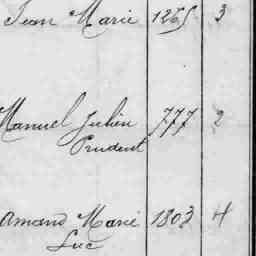 Jean Marie 1265 3
Manuel Julien 777 2
Prudent
Amand Marie 1803 4
Luc